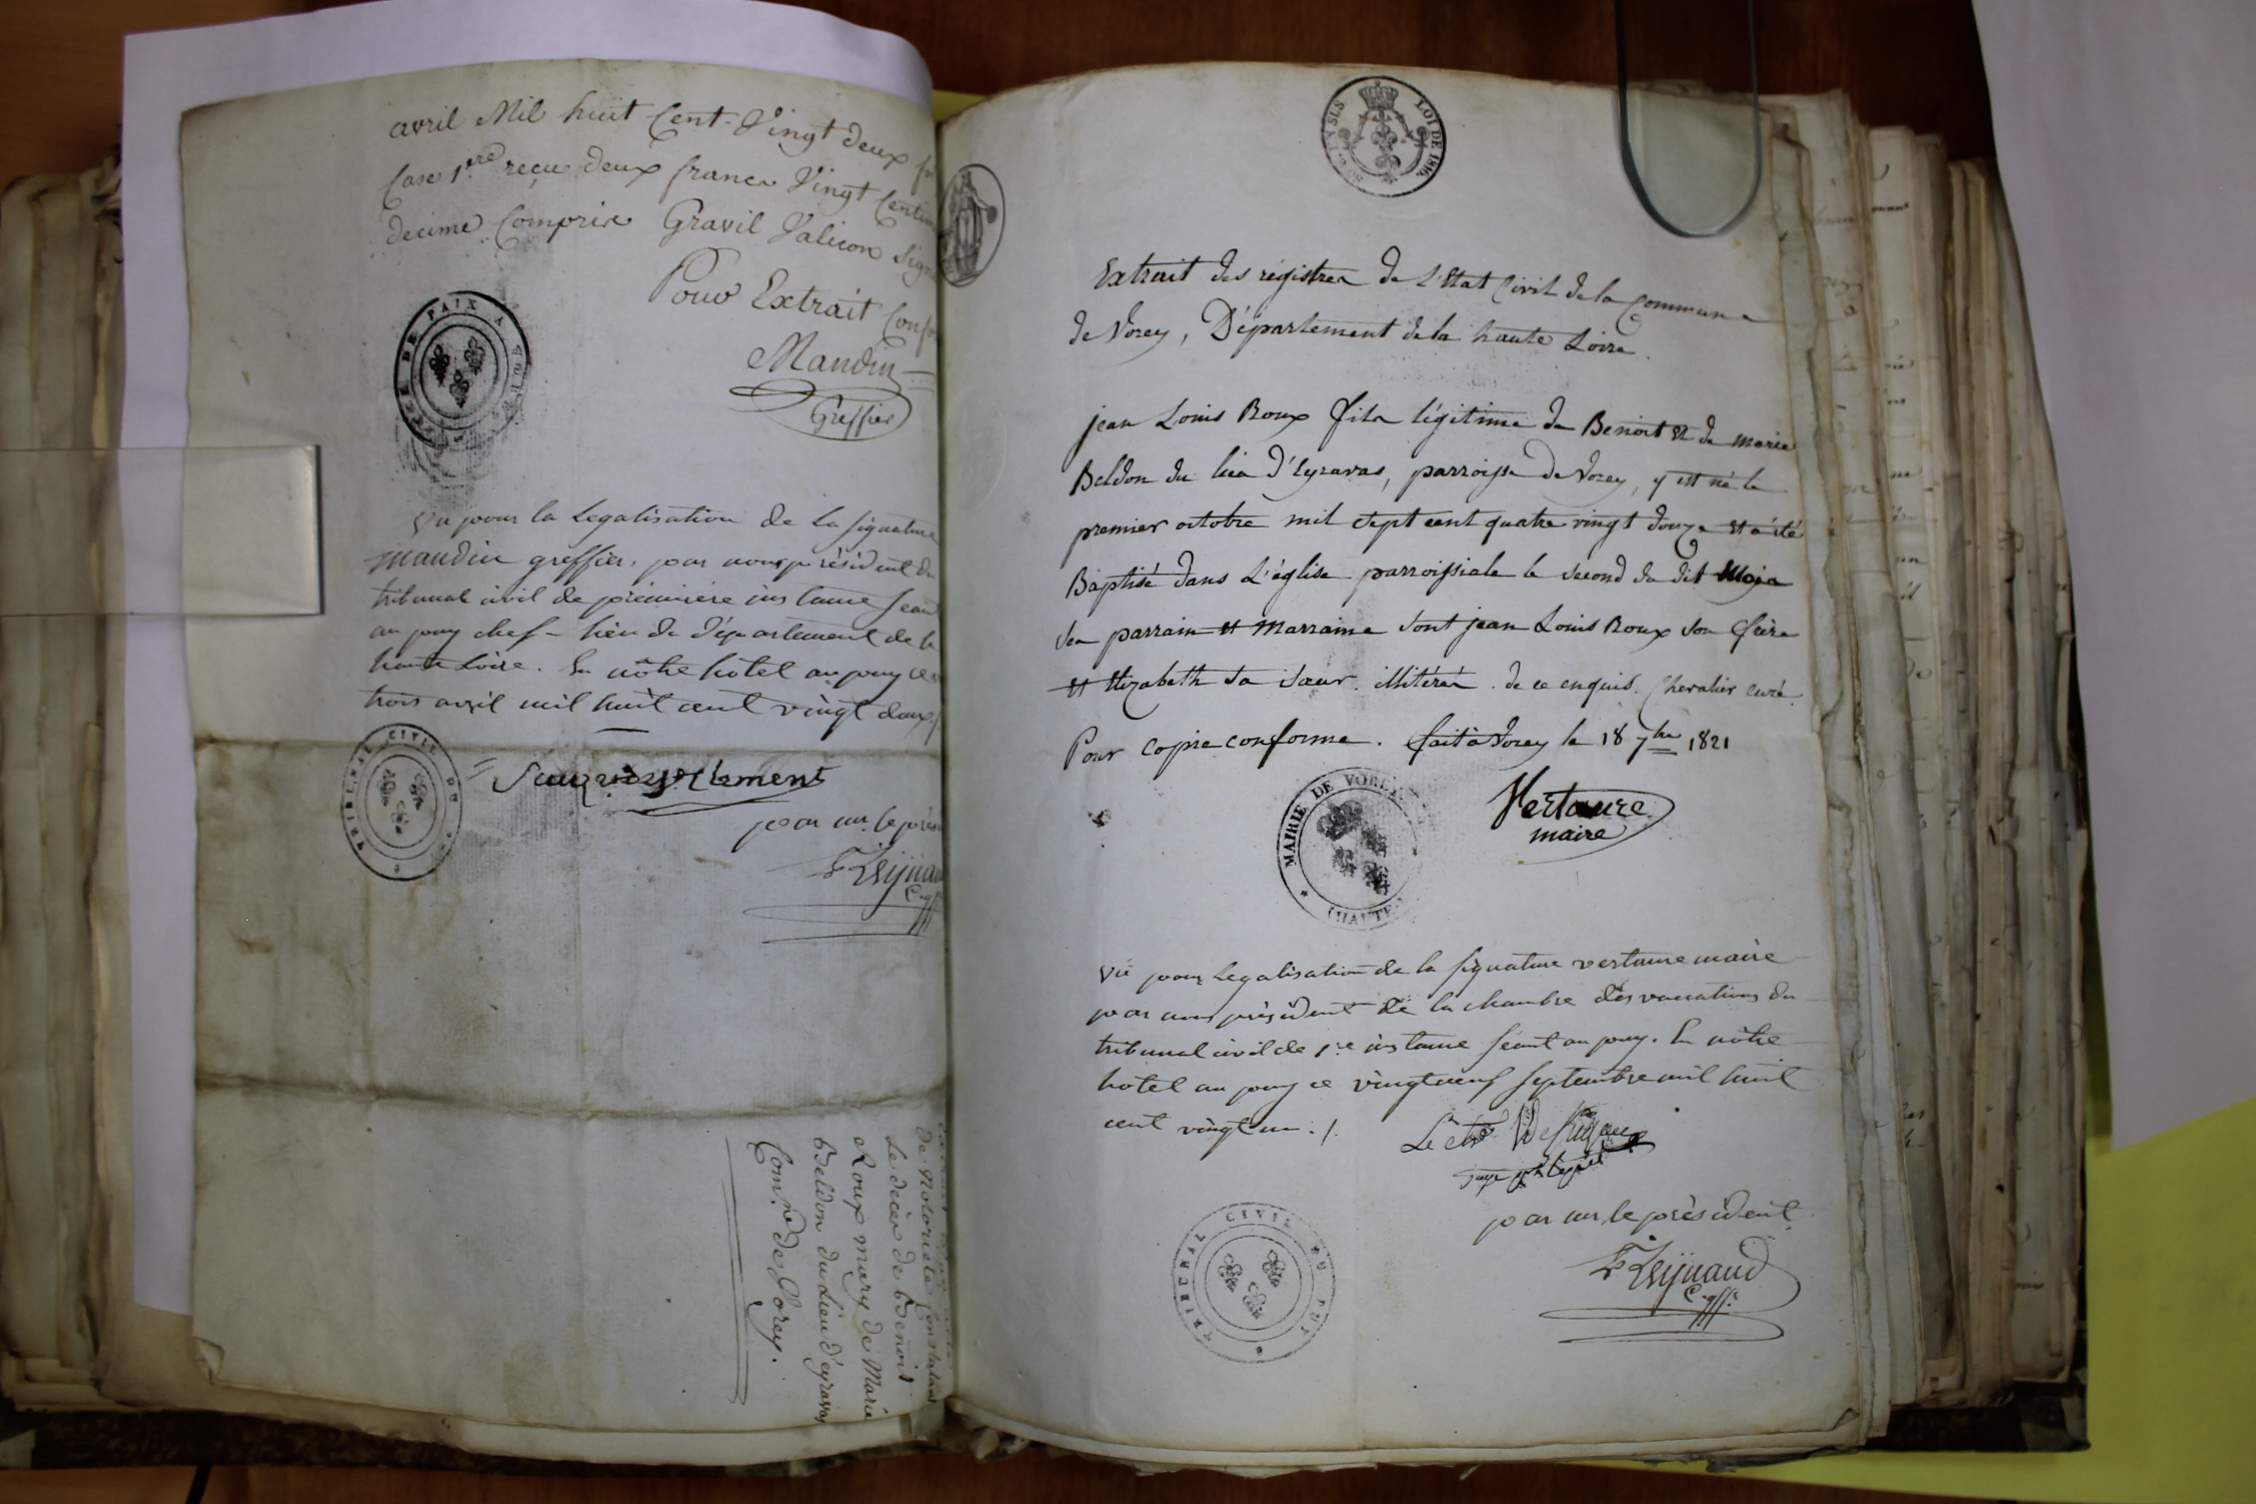 avril Mil huit Cent Vingt deux
Case 1ere reçu deux francs Vingt Centim
decime Compris Gravil Valicon Sign
Pour Extrait Conf
Mandin
Greffier
DE PAIX A
Vu pour la Legalisation de la signature
mandin greffier, par nous président du
tribunal civil de premiere instance sean
au puy chef-lieu du département de la
haute Loire. En nôtre hôtel au puy ce
trois avril mil huit cent vingt deux
TRIBUNAL CIVIL DU
par mr. le prés
de Notorieté Constatant
Le décès de Benoit
Roux mary de Marie
Beldon du Lieu d'eyravas
Com.ne de Vorey.
LOI DE 1816.
Extrait des régistres de L'Etat Civil de la Commune
de Vorey, Département de la haute Loire.
jean Louis Roux fils légitime de Benoit et de marie
Beldon du lieu d'Eyravas, parroisse de Vorey, y est né le
premier octobre mil sept cent quatre vingt douze et a été
Baptisé dans L'église parroissiale le second du dit Mois
Ses parrain et Marraine sont jean Louis Roux son frère
et Elizabeth sa sœur. illitérés. de ce enquis. Chevalier curé.
Pour copie conforme. fait à Vorey le 18 7bre 1821
Vertaure
maire
MAIRIE DE VOREY
(HAUTE-
Vu pour Legalisation de la signature vertaure maire
par nous président de la chambre des vacations du
tribunal civil de 1re instance séant au puy. En nôtre
hôtel au puy ce vingt neuf septembre mil huit
cent vingt un ./.
par mr. le président
TRIBUNAL CIVIL DU PUY